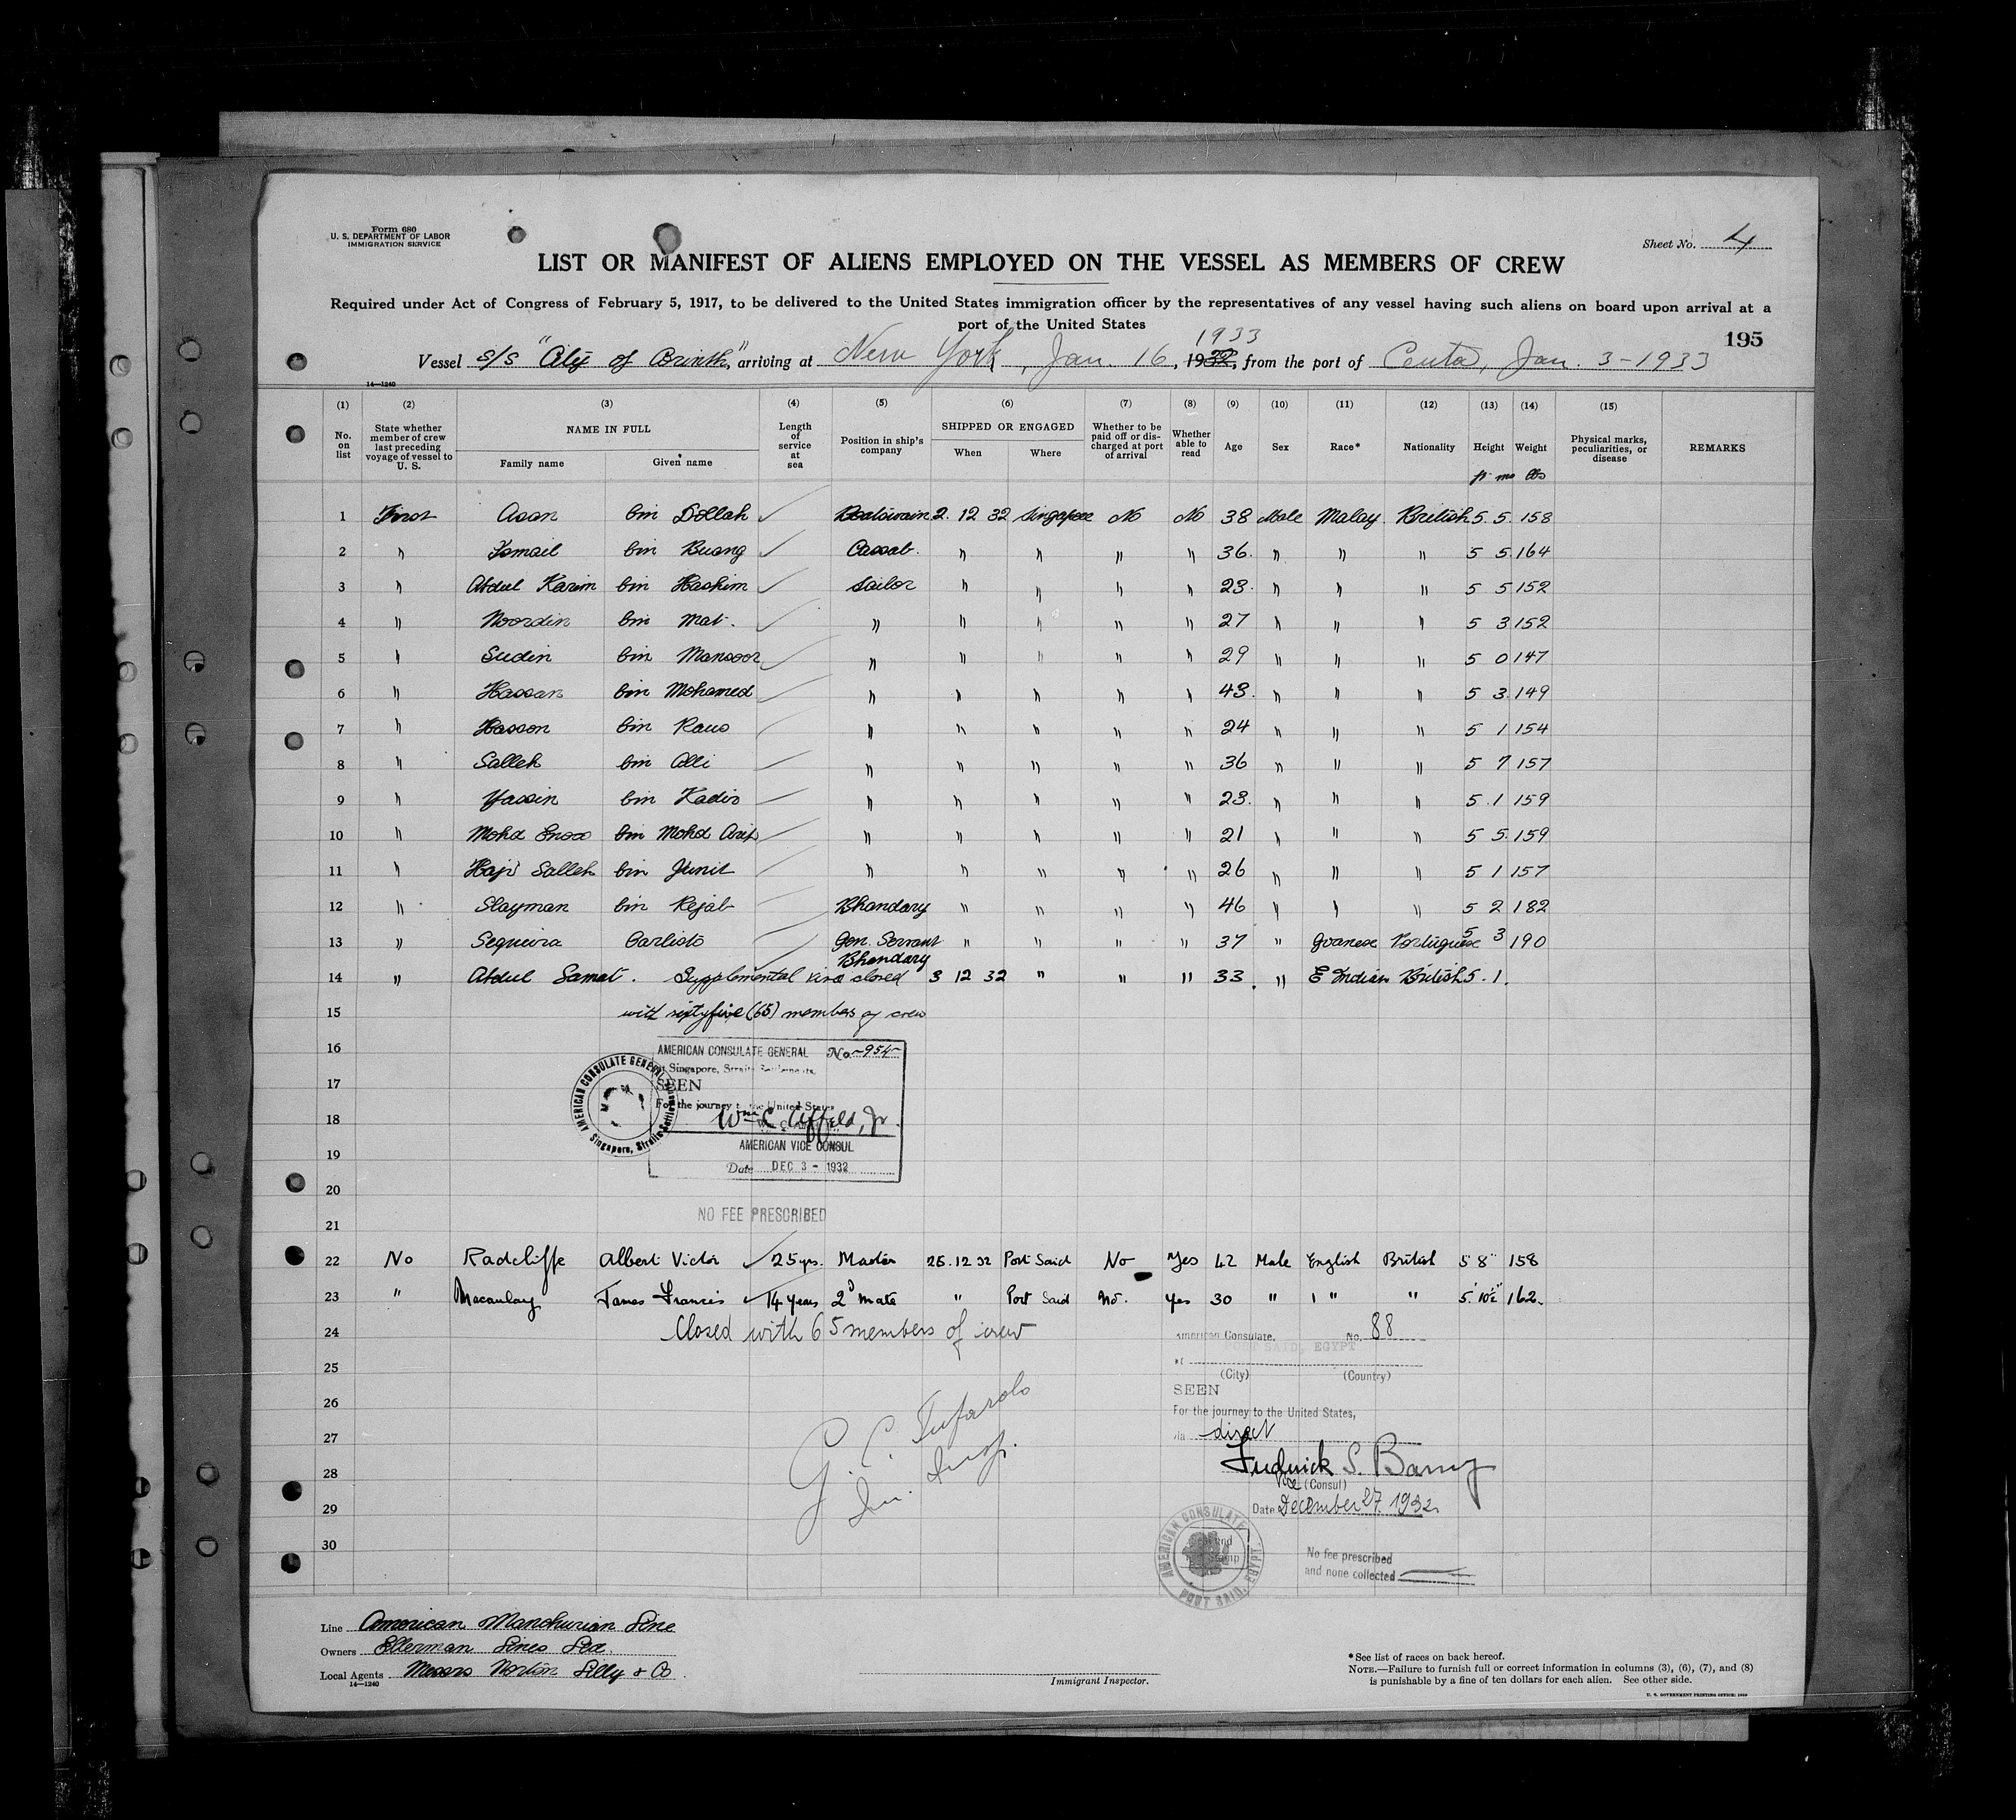 Form 680
U. S. DEPARTMENT OF LABOR
IMMIGRATION SERVICE
Sheet No. 4
LIST OR MANIFEST OF ALIENS EMPLOYED ON THE VESSEL AS MEMBERS OF CREW
Required under Act of Congress of February 5, 1917, to be delivered to the United States immigration officer by the representatives of any vessel having such aliens on board upon arrival at a
port of the United States
195
1933
Vessel s/s "City of Corinth", arriving at New York, Jan. 16, 1932, from the port of Ceuta, Jan. 3-1933
14—1240
(1) (2) (3) (4) (5) (6) (7) (8) (9) (10) (11) (12) (13) (14) (15)
No. on list State whether member of crew last preceding voyage of vessel to U. S. NAME IN FULL Family name Given name Length of service at sea Position in ship's company SHIPPED OR ENGAGED When Where Whether to be paid off or discharged at port of arrival Whether able to read Age Sex Race* Nationality Height Weight Physical marks, peculiarities, or disease REMARKS
ft ins lbs
1 First Asan bin Dollah ✓ Boatswain 2. 12 32 Singapore No No 38 Male Malay British 5. 5. 158
2 " Ismail bin Buang ✓ Cassab. " " " " 36. " " " 5 5. 164
3 " Abdul Karim bin Hashim ✓ Sailor " " " " 23. " " " 5 5 152
4 " Noordin bin Mat. ✓ " " " " " 27 " " " 5 3 152
5 " Sudin bin Mansoor ✓ " " " " " 29 " " " 5 0 147
6 " Hassan bin Mohamed " " " " " 43. " " " 5 3. 149
7 " Hasson bin Raus " " " " " 24 " " " 5 1 154
8 " Salleh bin Alli " " " " " 36 " " " 5 7 157
9 " Yassin bin Kadir " " " " " 23. " " " 5. 1 159
10 " Mohd bin Mohd " " " " " 21 " " " 5 5. 159
11 " Haji Salleh bin Junit " " " " " 26 " " " 5 1 157
12 " Slayman bin Rejab Bhandary " " " " 46 " " " 5 2 182
13 " Sequeira Carlisto Gen. Servant " " " " 37 " Goanese Portuguese 5 3 190
Bhandary
14 " Abdul Samat. Supplemental visa closed 3 12 32 " " " 33. " E Indian British 5. 1.
15 with sixtyfive (65) members of crew
16 AMERICAN CONSULATE GENERAL No. 954
at Singapore, Straits Settlements.
17 SEEN
For the journey to the United States
18 Wm C. Affeld, Jr.
AMERICAN VICE CONSUL
19 Date DEC 3 - 1932
AMERICAN CONSULATE GENERAL Singapore, Straits Settlements
20
21 NO FEE PRESCRIBED
22 No Radcliffe Albert Victor ✓ 25 yrs. Master 26. 12 32 Port Said No Yes 42 Male English British 5' 8" 158
23 " Macaulay James Francis ✓ 14 years 2d Mate " Port Said No. Yes 30 " " " 5' 10½" 162
24 Closed with 65 members of crew
American Consulate, No. 88
PORT SAID, EGYPT
25 at
(City) (Country)
SEEN
26 For the journey to the United States,
27 via direct
G. C. Tufarolo
Im. Insp.
Frederick S. Barny
28 Vice (Consul)
29 Date December 27. 1932
AMERICAN CONSULATE PORT SAID, EGYPT.
30 No fee prescribed
and none collected
Line American Manchurian Line
Owners Ellerman Lines Ltd.
Local Agents Messrs Norton Lilly & Co.
14—1240
Immigrant Inspector.
*See list of races on back hereof.
NOTE.—Failure to furnish full or correct information in columns (3), (6), (7), and (8)
is punishable by a fine of ten dollars for each alien. See other side.